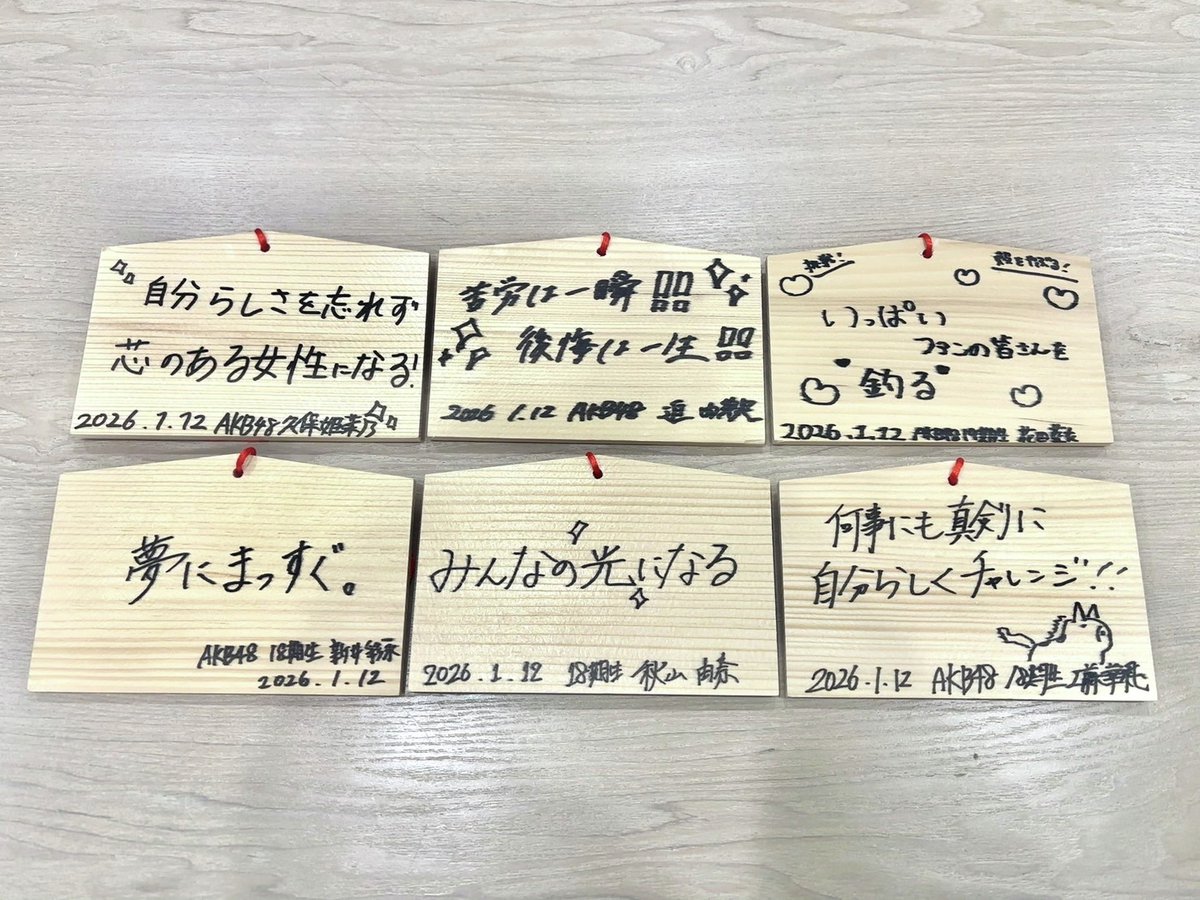 自分らしさを忘れず
芯のある女性になる!
2026.1.12 AKB48 久保姫菜乃
苦労は一瞬!!
後悔は一生!!
2026 1.12 AKB48 迫 由芽実
いっぱい
ファンの皆さんを
"釣る"
2026.1.12 AKB48 18期生 花田藍衣
夢にまっすぐ。
AKB48 18期生 新井彩永
2026.1.12
みんなの光になる
2026.1.12 18期生 秋山由奈
何事にも真剣に
自分らしくチャレンジ!!
2026.1.12 AKB48 18期生 工藤華純